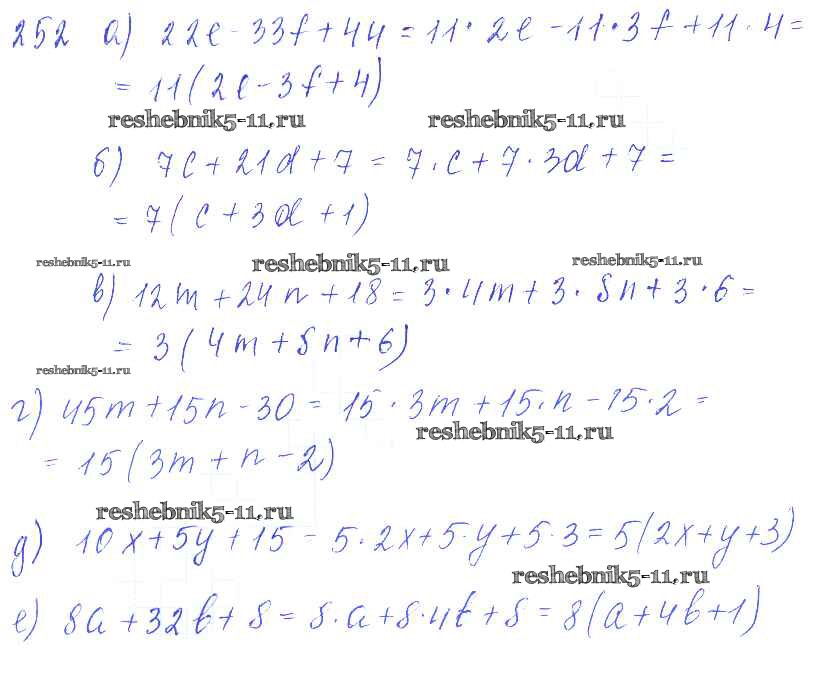 252 а) 22e - 33f + 44 = 11 · 2e - 11 · 3f + 11 · 4 =
= 11(2e - 3f + 4)
reshebnik5-11.ru reshebnik5-11.ru
б) 7c + 21d + 7 = 7 · c + 7 · 3d + 7 =
= 7(c + 3d + 1)
reshebnik5-11.ru reshebnik5-11.ru reshebnik5-11.ru
в) 12m + 24n + 18 = 3 · 4m + 3 · 8n + 3 · 6 =
= 3(4m + 8n + 6)
reshebnik5-11.ru
г) 45m + 15n - 30 = 15 · 3m + 15 · n - 15 · 2 =
reshebnik5-11.ru
= 15(3m + n - 2)
reshebnik5-11.ru
д) 10x + 5y + 15 = 5 · 2x + 5 · y + 5 · 3 = 5(2x + y + 3)
reshebnik5-11.ru
е) 8a + 32b + 8 = 8 · a + 8 · 4b + 8 = 8(a + 4b + 1)